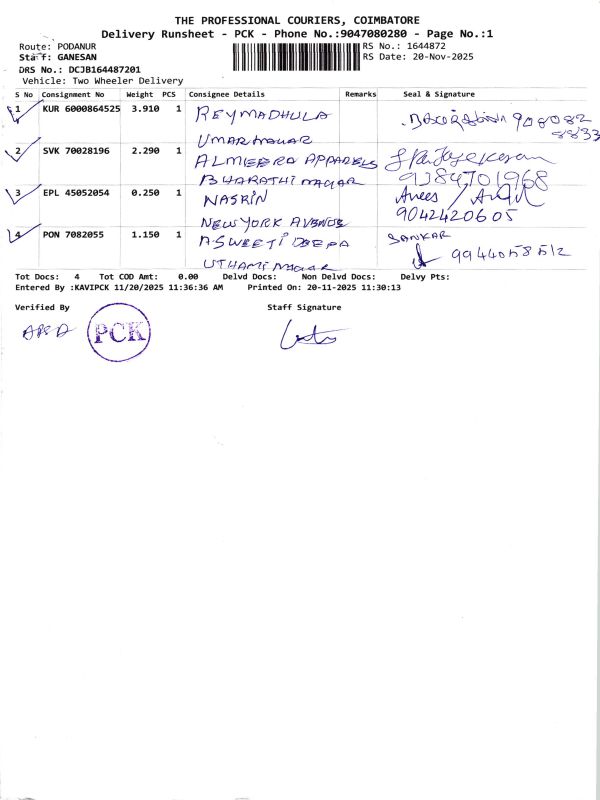 THE PROFESSIONAL COURIERS, COIMBATORE
Delivery Runsheet - PCK - Phone No.:9047080280 - Page No.:1
Route: PODANUR RS No.: 1644872
Staff: GANESAN RS Date: 20-Nov-2025
DRS No.: DCJB164487201
Vehicle: Two Wheeler Delivery
S No Consignment No Weight PCS Consignee Details Remarks Seal & Signature
1 KUR 6000864525 3.910 1 REYMADHULA 908082
UMAR NAGAR 8833
2 SVK 70028196 2.290 1 ALMEERA APPARELS
BHARATHI NAGAR 9384701968
3 EPL 45052054 0.250 1 NASRIN Anees /
NEWYORK AVENUE 9042420605
4 PON 7082055 1.150 1 A SWEETI DEEPA SANKAR
UTHAMI NAGAR
Tot Docs: 4 Tot COD Amt: 0.00 Delvd Docs: Non Delvd Docs: Delvy Pts:
Entered By :KAVIPCK 11/20/2025 11:36:36 AM Printed On: 20-11-2025 11:30:13
Verified By Staff Signature
PCK